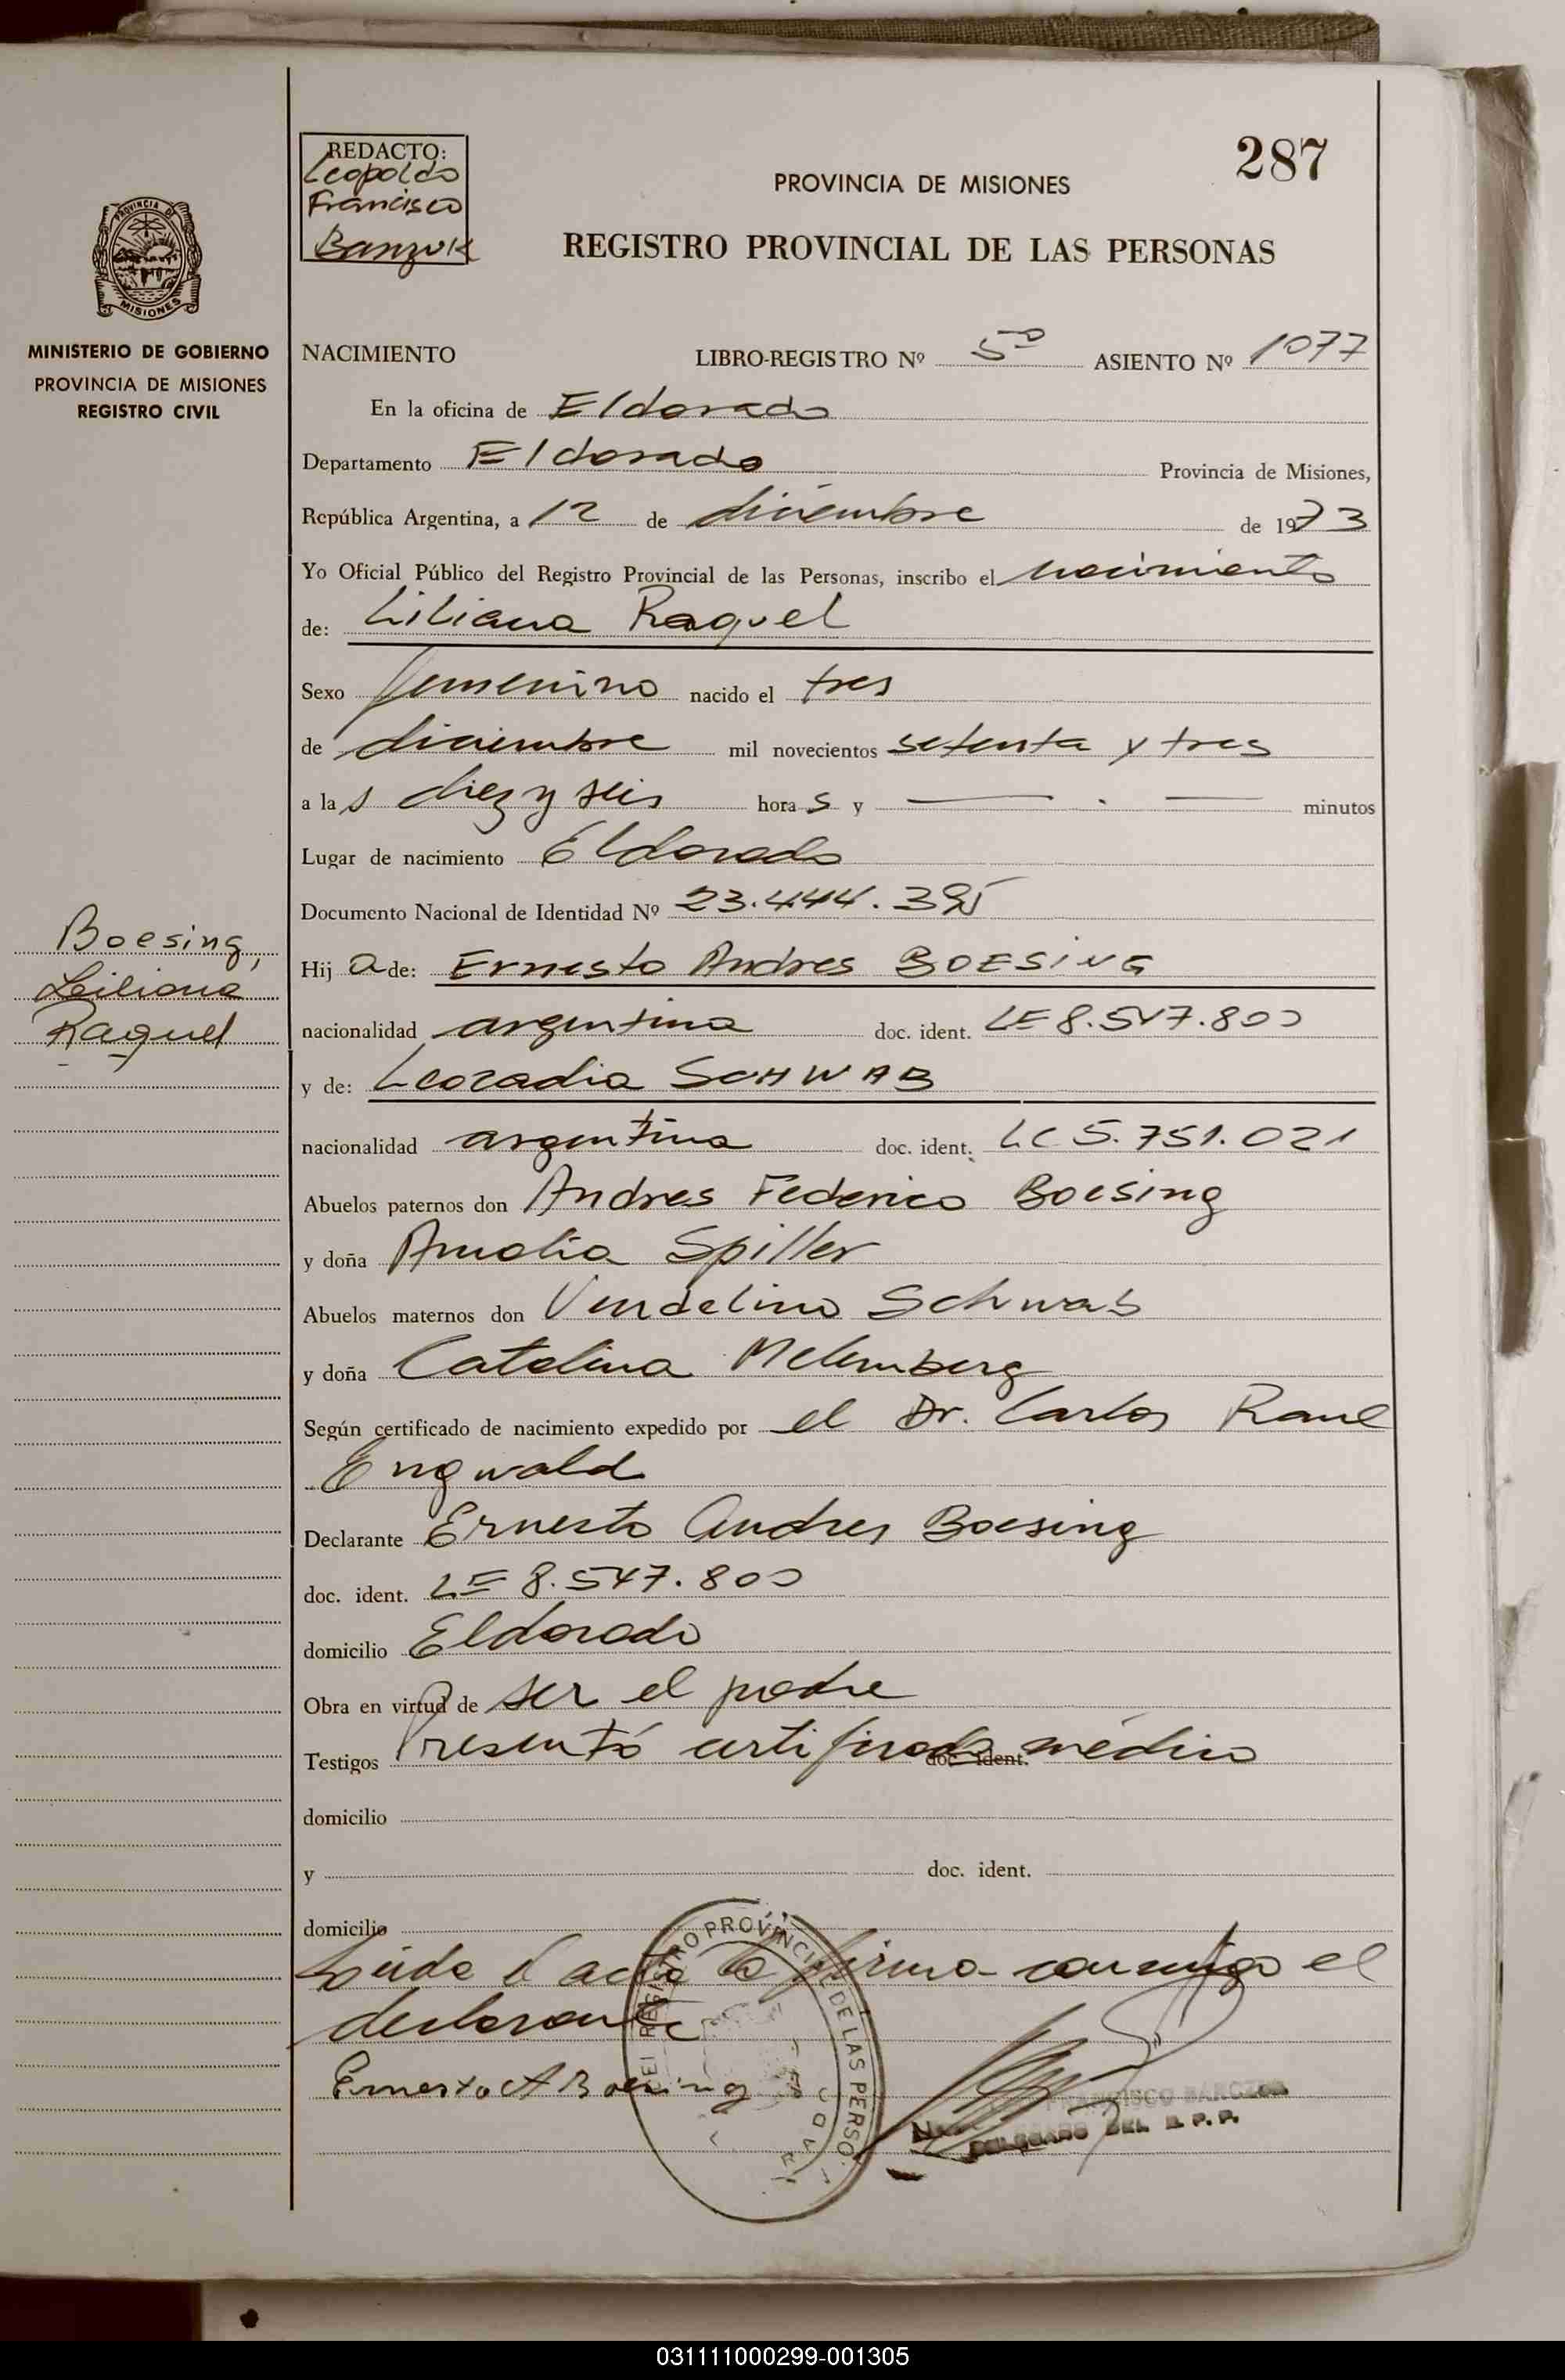 287
REDACTO:
Leopoldo
Francisco
PROVINCIA DE MISIONES
REGISTRO PROVINCIAL DE LAS PERSONAS
PROVINCIA DE
MISIONES
MINISTERIO DE GOBIERNO
PROVINCIA DE MISIONES
REGISTRO CIVIL
NACIMIENTO LIBRO-REGISTRO Nº 5º ASIENTO Nº 1077
En la oficina de Eldorado
Departamento Eldorado Provincia de Misiones,
República Argentina, a 12 de diciembre de 1973
Yo Oficial Público del Registro Provincial de las Personas, inscribo el nacimiento
de: Liliana Raquel
Sexo femenino nacido el tres
de diciembre mil novecientos setenta y tres
a las diez y seis horas y — . — minutos
Lugar de nacimiento Eldorado
Documento Nacional de Identidad Nº 23.444.395
Boesing,
Liliana
Raquel
Hija de: Ernesto Andres BOESING
nacionalidad argentina doc. ident. LE 8.547.800
y de: Leocadia SCHWAB
nacionalidad argentina doc. ident. LC 5.751.021
Abuelos paternos don Andres Federico Boesing
y doña Amalia Spiller
Abuelos maternos don Vendelino Schwab
y doña Catalina Melemberg
Según certificado de nacimiento expedido por el Dr. Carlos Raul
Engwald
Declarante Ernesto Andres Boesing
doc. ident. LE 8.547.800
domicilio Eldorado
Obra en virtud de ser el padre
Testigos Presentó certificado médico doc. ident.
domicilio
y doc. ident.
domicilio
Leída el acta la firma conmigo el
declarante
Ernesto A Boesing
REGISTRO PROVINCIAL DE LAS PERSO
FRANCISCO
DELEGADO DEL R. P. P.
031111000299-001305